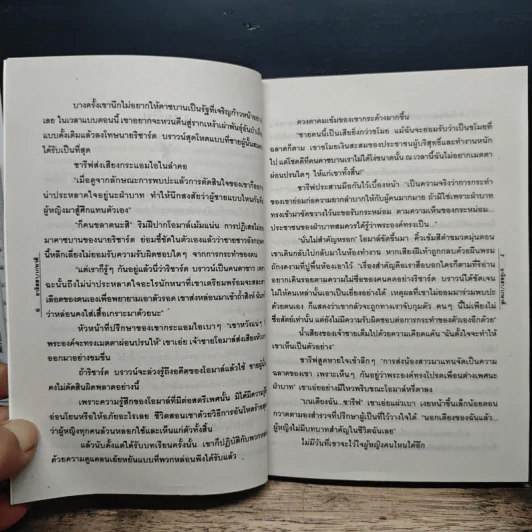 บางครั้งเขานึกไม่อยากให้คาซบานเป็นรัฐที่เจริญก้าวหน้า
เลย ในเวลาแบบตอนนี้ เขาอยากจะหวนคืนสู่รากเหง้าเผ่าพันธุ์อัน
แบบดั้งเดิมแล้วลงโทษนายริชาร์ด บราวน์สุดโหดแบบที่ชายผู้นั้น
ได้รับเป็นที่สุด
ชารีฟส่งเสียงกระแอมไอในลำคอ
"เมื่อดูจากลักษณะการพบปะแล้วการตัดสินใจของเขาก็
น่าประหลาดใจอยู่นะฝ่าบาท ทำให้นึกสงสัยว่าผู้ชายแบบไหนกัน
ผู้หญิงมาสู้ศึกแทนตัวเอง"
"ก็คนขลาดนะสิ" ริมฝีปากโอมาล์เม้มแน่น การปฏิเสธไม่
มาคาซบานของนายริชาร์ด ย่อมชี้ชัดในตัวเองแล้วว่าชายชาวอังกฤษ
นี้หลีกเลี่ยงไม่ยอมรับความรับผิดชอบใดๆ จากการกระทำของตน
"แต่เราก็รู้ๆ กันอยู่แล้วนี่ว่าริชาร์ด บราวน์เป็นคนตาขาว เพราะ
ฉะนั้นถึงไม่น่าประหลาดใจอะไรนักหนาที่เขาเตรียมพร้อมจะสละ
เลือดของตนเองเพื่อพยายามเอาตัวรอด เขาส่งหล่อนมาเข้าถ้ำสิงห์
ว่าหล่อนคงใส่เสื้อเกราะมาด้วยนะ"
หัวหน้าที่ปรึกษาของเขากระแอมไอเบาๆ "เขาหวังแน่
พระองค์จะทรงเมตตาผ่อนปรนให้" เขาเอ่ย เจ้าชายโอมาล์ส่งเสียง
ออกมาอย่างขมขื่น
ถ้าริชาร์ด บราวน์จะล่วงรู้ถึงอดีตของโอมาล์ได้ใช้ ชายผู้นั้น
คงไม่ตัดสินผิดพลาดอย่างนี้
เพราะความรู้สึกของโอมาล์ที่มีต่อสตรีเพศนั้น มิได้มีความ
อ่อนโยนหรือให้อภัยอะไรเลย ชีวิตสอนเขาด้วยวิธีการอันโหดร้าย
ว่าผู้หญิงทุกคนล้วนหลอกใช้และเห็นแก่ตัวทั้งสิ้น
แล้วนับตั้งแต่ได้รับบทเรียนครั้งนั้น เขาก็ปฏิบัติกับพวก
ด้วยความดูแคลนเย้ยหยันแบบที่พวกหล่อนพึงได้รับแล้ว
ดวงตาคมเข้มของเขากระด้างมากขึ้น
"ชายคนนี้เป็นเสียยิ่งกว่าขโมย แม้ฉันจะยอมรับว่าเป็นขโมยที่
ฉลาดก็ตาม เขาขโมยเงินสะสมของประชาชนผู้บริสุทธิ์และทำงานหนัก
ไป แต่โชคดีที่คนคาซบานเราไม่ได้โง่ขนาดนั้น ณ เวลานี้ฉันไม่อยากเมตตา
ผ่อนปรนใดๆ ให้แก่เขาทั้งสิ้น"
ชารีฟประสานมือกันไว้เบื้องหน้า "เป็นความจริงว่าการกระทำ
ของเขาย่อมก่อความยากลำบากให้กับผู้คนมากมาย ถ้ามิใช่เพราะฝ่าบาท
ทรงเข้ามาขัดขวางไว้นะขอรับกระหม่อม ตามความเห็นของกระหม่อม...
ประชาชนของฝ่าบาทสมควรได้รู้ว่าพระองค์ทรงเป็น..."
"นั่นไม่สำคัญหรอก" โอมาล์ขัดขึ้นมา คิ้วเข้มสีดำขมวดมุ่นตอน
เขาเดินกลับไปกลับมาในห้องทำงาน หากเสียงฝีเท้าถูกกลบด้วยผืนพรม
ถักงดงามที่ปูพื้นห้องเอาไว้ "เรื่องสำคัญคือเราสืบออกใครก็ตามที่ริอ่าน
อยากเดินรอยตามความไม่ซื่อของคนคดอย่างริชาร์ด บราวน์ได้ชัดเจน
ไม่ให้คนเหล่านั้นเอาเป็นเยี่ยงอย่างได้ เหตุผลที่เขาไม่ยอมมาร่วมพบปะ
ด้วยตนเอง ก็แสดงว่าเขากลัวจะถูกทางเราจับกุมตัว คนๆ นี้ไม่เพียงไม่
ซื่อสัตย์เท่านั้น แต่ยังไม่มีความรับผิดชอบต่อการกระทำของตัวเองอีกด้วย"
น้ำเสียงของเจ้าชายเต็มไปด้วยความเคียดแค้น "ฉันตั้งใจจะทำให้
เขาเห็นเป็นตัวอย่าง"
ชารีฟสูดหายใจเข้าลึกๆ "การส่งน้องสาวมาแทนจัดเป็นความ
ฉลาดของเขา เพราะเห็นๆ กันอยู่ว่าพระองค์ทรงโปรดเพื่อนต่างเพศนะ
ฝ่าบาท" เขาเอ่ยอย่างมีไหวพริบขณะโอมาล์หรี่ตาลง
"บนเตียงฉัน...ชารีฟ" เขาเอ่ยแผ่วเบา เงยหน้าขึ้นเล็กน้อยตอน
กวาดตามองสำรวจที่ปรึกษาผู้เป็นที่ไว้วางใจได้ "นอกเตียงของฉันแล้ว...
ผู้หญิงไม่มีบทบาทสำคัญในชีวิตฉันเลย"
ไม่มีวันที่เขาจะไว้ใจผู้หญิงคนไหนได้อีก